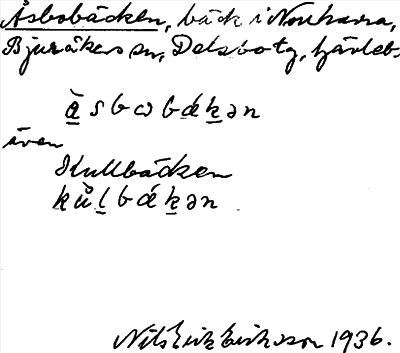 Åsbobäcken, bäck i Norrhavra,
Bjuråkers sn, Delsbo tg, Gävleb.
å̀sbωbǽk̠ən
även
Kullbäcken
kù̊l̠bǽk̠ən
Nils Erik Eriksson 1936.